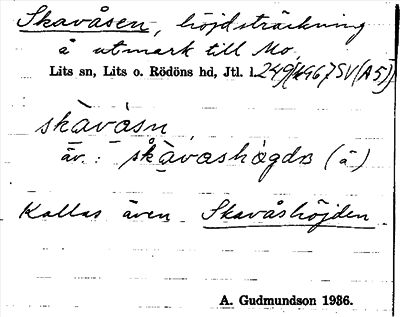 Skavåsen, höjdsträckning
å utmark till Mo
Lits sn, Lits o. Rödöns hd, Jtl. l.
skàvàsn
äv.: skàvashøgda (ä)
Kallas även Skavåshöjden
A. Gudmundson 1936.